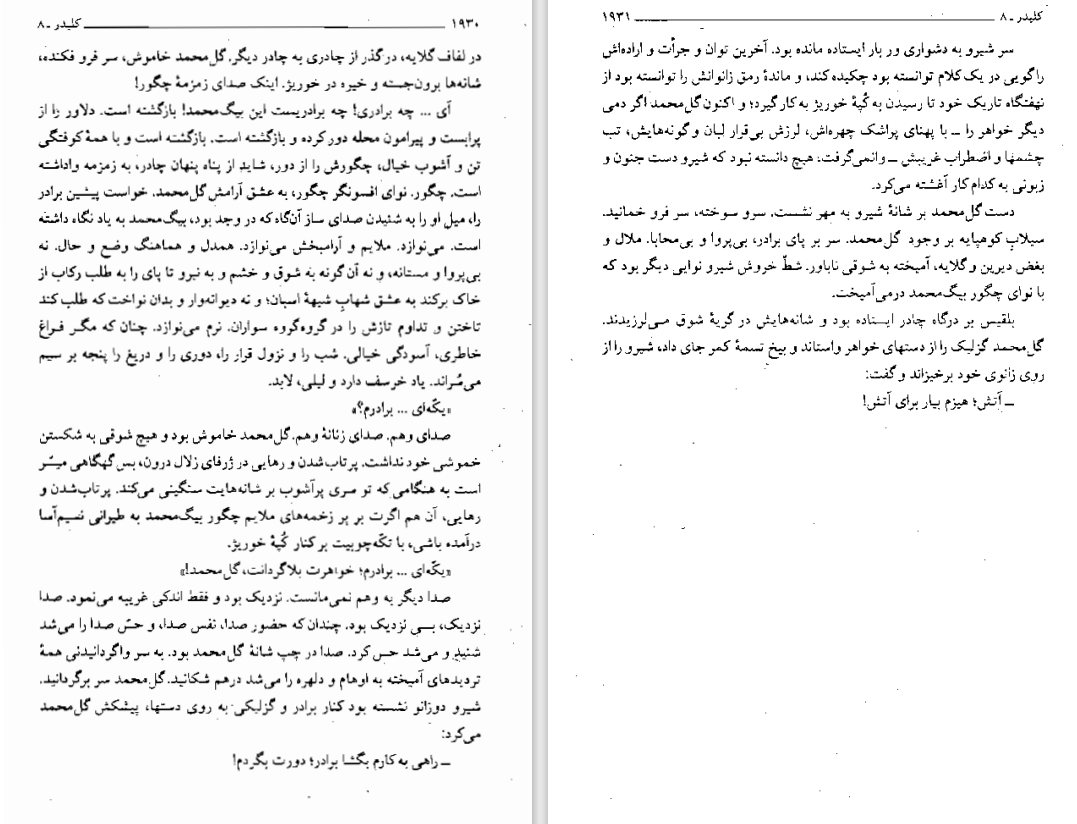 ۱۹۳۰ کلیدر ـ ۸
در لفاف گلایه، درگذر از چادری به چادر دیگر. گل‌محمد خاموش، سر فرو فکنده،
شانه‌ها برون‌جسته و خیره در خوریژ. اینک صدای زمزمهٔ چگور!
آی ... چه برادری! چه برادریست این بیگ‌محمد! بازگشته است. دلاور را از
پرابست و پیرامون محله دور کرده و بازگشته است. بازگشته است و با همهٔ کوفتگی
تن و آشوب خیال، چگورش را از دور، شاید از پناه پنهان چادر، به زمزمه واداشته
است. چگور. نوای افسونگر چگور، به عشق آرامش گل‌محمد. خواست پیشین برادر
را، میل او را به شنیدن صدای ساز آن‌گاه که در وجد بود، بیگ‌محمد به یاد نگاه داشته
است. می‌نوازد. ملایم و آرامبخش می‌نوازد. همدل و هماهنگ وضع و حال. نه
بی‌پروا و مستانه، و نه آن گونه به شوق و خشم و به نیرو تا پای را به طلب رکاب از
خاک برکند به عشق شهابِ شیههٔ اسبان؛ و نه دیوانه‌وار و بدان نواخت که طلب کند
تاختن و تداوم تازش را در گروه‌گروه سواران. نرم می‌نوازد. چنان که مگر فراغ
خاطری، آسودگی خیالی. شب را و نزول قرار را، دوری را و دریغ را پنجه بر سیم
می‌سُراند. یاد خرسف دارد و لیلی، لابد.
«یکّه‌ای ... برادرم؟»
صدای وهم. صدای زنانهٔ وهم. گل‌محمد خاموش بود و هیچ شوقی به شکستن
خموشی خود نداشت. پرتاب‌شدن و رهایی در ژرفای زلال درون، بس گهگاهی میسّر
است به هنگامی که تو سری پرآشوب بر شانه‌هایت سنگینی می‌کند. پرتاب‌شدن و
رهایی، آن هم اگرت بر پر زخمه‌های ملایم چگور بیگ‌محمد به طیرانی نسیم‌آسا
درآمده باشی، با تکّه‌چوبیت بر کنار کُپهٔ خوریژ.
«یکّه‌ای ... برادرم؛ خواهرت بلاگردانت، گل‌محمد!»
صدا دیگر به وهم نمی‌مانست. نزدیک بود و فقط اندکی غریبه می‌نمود. صدا
نزدیک، بسی نزدیک بود. چندان که حضور صدا، نفس صدا، و حسّ صدا را می‌شد
شنید و می‌شد حس کرد. صدا در چپ شانهٔ گل‌محمد بود. به سر واگردانیدنی همهٔ
تردیدهای آمیخته به اوهام و دلهره را می‌شد درهم شکانید. گل‌محمد سر برگردانید.
شیرو دوزانو نشسته بود کنار برادر و گزلیکی به روی دستها، پیشکش گل‌محمد
می‌کرد:
ـ راهی به کارم بگشا برادر؛ دورت بگردم!
کلیدر ـ ۸ ۱۹۳۱
سر شیرو به دشواری ور بار ایستاده مانده بود. آخرین توان و جرأت و اراده‌اش
را گویی در یک کلام توانسته بود چکیده کند، و ماندهٔ رمق زانوانش را توانسته بود از
نهفتگاه تاریک خود تا رسیدن به کُپهٔ خوریژ به کار گیرد؛ و اکنون گل‌محمد اگر دمی
دیگر خواهر را ـ با پهنای پراشک چهره‌اش، لرزش بی‌قرار لبان و گونه‌هایش، تب
چشمها و اضطراب غریبش ـ وانمی‌گرفت، هیچ دانسته نبود که شیرو دست جنون و
زبونی به کدام کار آغشته می‌کرد.
دست گل‌محمد بر شانهٔ شیرو به مهر نشست. سرو سوخته، سر فرو خمانید.
سیلابِ کوهپایه بر وجود گل‌محمد. سر بر پای برادر، بی‌پروا و بی‌محابا. ملال و
بغض دیرین و گلایه، آمیخته به شوقی ناباور. شطّ خروش شیرو نوایی دیگر بود که
با نوای چگور بیگ‌محمد درمی‌آمیخت.
بلقیس بر درگاه چادر ایستاده بود و شانه‌هایش در گریهٔ شوق می‌لرزیدند.
گل‌محمد گزلیک را از دستهای خواهر واستاند و بیخ تسمهٔ کمر جای داد، شیرو را از
روی زانوی خود برخیزاند و گفت:
ـ آتش؛ هیزم بیار برای آتش!